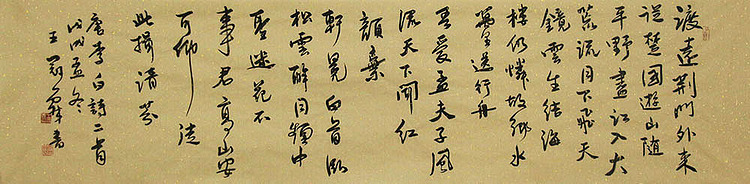 渡远荆门外来
从楚国游山随
平野尽江入大
荒流月下飞天
镜云生结海
楼仍怜故乡水
万里送行舟
吾爱孟夫子风
流天下闻红
颜弃
轩冕白首卧
松云醉月频中
圣迷花不
事君高山安
可仰徒
此揖清芬
唐李白诗二首
戊戌孟冬
王
书